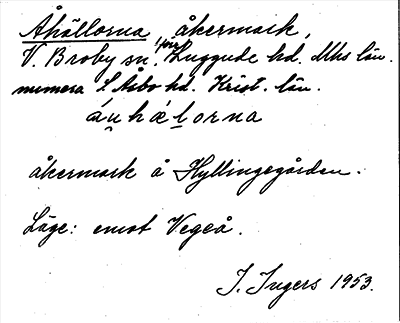 Åhällorna åkermark,
V. Broby sn, förr Luggude hd. Mhs län.
numera S Åsbo hd. Krist. län.
áu̯hǽlorna
åkermark å Hyllingegården.
Läge: emot Vegeå.
I. Ingers 1953.